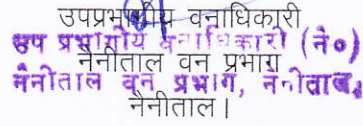 उपप्रभागीय वनाधिकारी
उप प्रभागीय वनाधिकारी (नै०)
नैनीताल वन प्रभाग
नैनीताल वन प्रभाग, नैनीताल
नैनीताल।